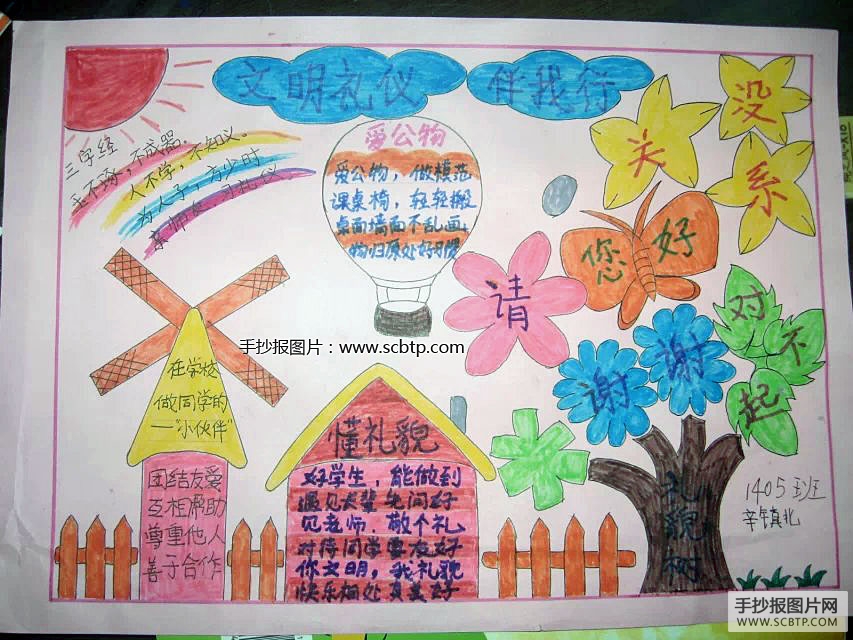 文明礼仪 伴我行
三字经
玉不琢,不成器.
人不学,不知义。
为人子,方少时
亲师友,习礼仪
爱公物
爱公物,做模范
课桌椅,轻轻搬
桌面墙面不乱画,
物归原处好习惯
没
关
系
您好
请
对
不
起
谢谢
手抄报图片:www.scbtp.com
在学校
做同学的
—“小伙伴”
团结友爱
互相帮助
尊重他人
善于合作
懂礼貌
好学生,能做到
遇见长辈先问好
见老师.敬个礼
对待同学要友好
你文明,我礼貌
快乐相处真美好
礼貌树
1405班
手抄报图片网
WWW.SCBTP.COM